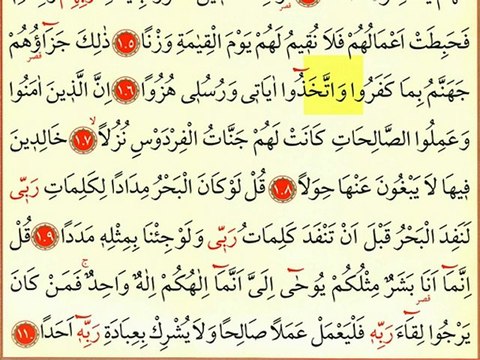 فَحَبِطَتْ اَعْمَالُهُمْ فَلَا نُق۪يمُ لَهُمْ يَوْمَ الْقِيٰمَةِ وَزْنًا ﴿١٠٥﴾ ذٰلِكَ جَزَٓاؤُ۬هُمْ
جَهَنَّمُ بِمَا كَفَرُوا وَاتَّخَذُٓوا اٰيَات۪ي وَرُسُل۪ي هُزُوًا ﴿١٠٦﴾ اِنَّ الَّذ۪ينَ اٰمَنُوا
وَعَمِلُوا الصَّالِحَاتِ كَانَتْ لَهُمْ جَنَّاتُ الْفِرْدَوْسِ نُزُلًاۙ ﴿١٠٧﴾ خَالِد۪ينَ
ف۪يهَا لَا يَبْغُونَ عَنْهَا حِوَلًا ﴿١٠٨﴾ قُلْ لَوْ كَانَ الْبَحْرُ مِدَادًا لِكَلِمَاتِ رَبّ۪ي
لَنَفِدَ الْبَحْرُ قَبْلَ اَنْ تَنْفَدَ كَلِمَاتُ رَبّ۪ي وَلَوْ جِئْنَا بِمِثْلِه۪ مَدَدًا ﴿١٠٩﴾ قُلْ
اِنَّمَٓا اَنَا۬ بَشَرٌ مِثْلُكُمْ يُوحٰٓى اِلَيَّ اَنَّمَٓا اِلٰهُكُمْ اِلٰهٌ وَاحِدٌۚ فَمَنْ كَانَ
يَرْجُوا لِقَٓاءَ رَبِّه۪ فَلْيَعْمَلْ عَمَلًا صَالِحًا وَلَا يُشْرِكْ بِعِبَادَةِ رَبِّه۪ٓ اَحَدًا ﴿١١٠﴾